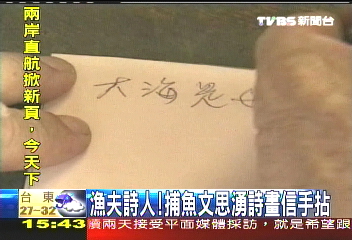 TVBS新聞台
兩岸直航掀新頁，今天下
大海是
台東
27-32
漁夫詩人!捕魚文思湧詩畫信手拈
15:43
續兩天接受平面媒體採訪，就是希望跟